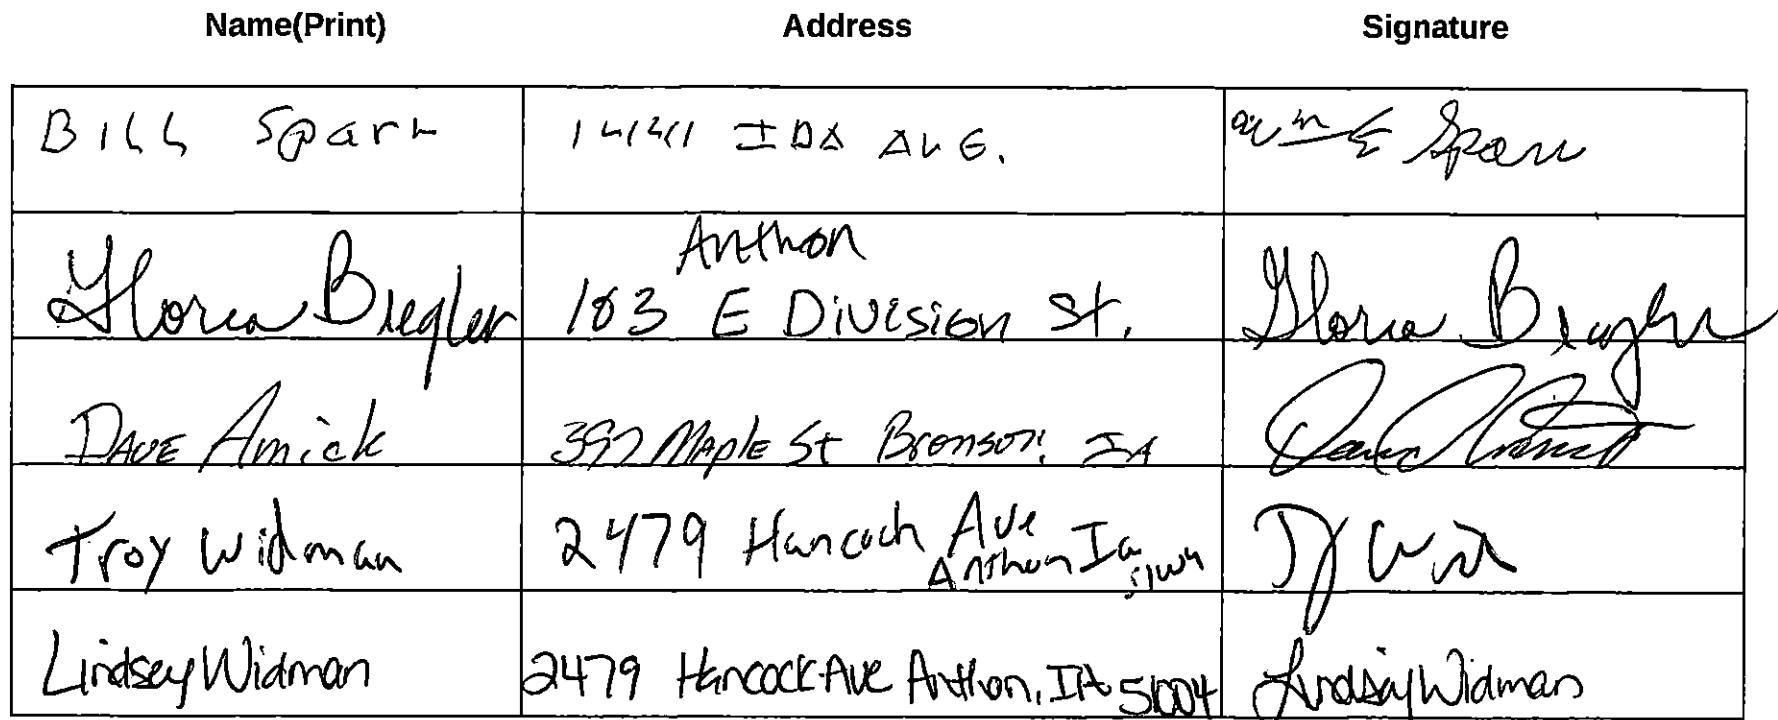 Name(Print) Address Signature
Bill Spark IDA AVE. Wm E Spark
Anthon
Gloria Biegler 103 E Division St. Gloria Biegler
Dave Amick 397 Maple St Bronson, IA
Troy Widman 2479 Hancock Ave
Anthon Ia
Lindsey Widman 2479 Hancock Ave Anthon, IA 51004 Lindsay Widman